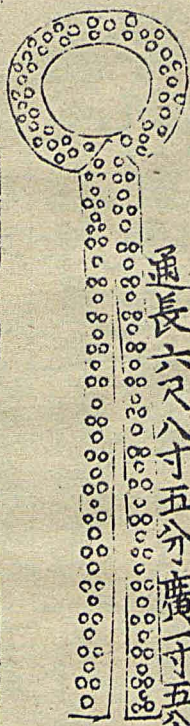 通長六尺八寸五分廣一寸五分